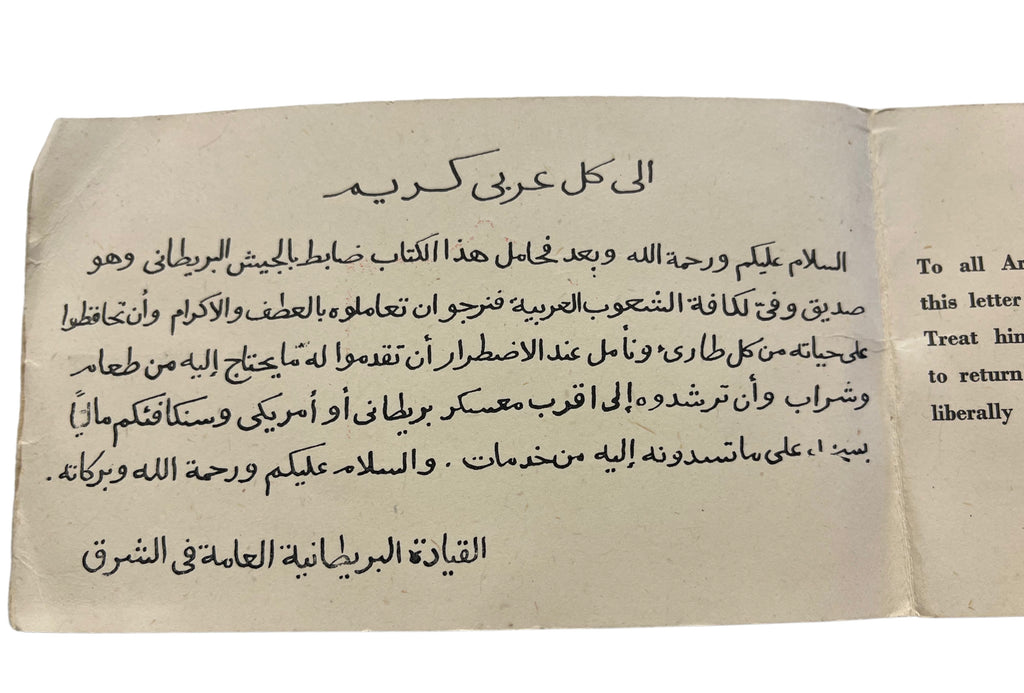 الى كل عربى كريم
السلام عليكم ورحمة الله وبعد فحامل هذا الكتاب ضابط بالجيش البريطانى وهو
صديق وفىّ لكافة الشعوب العربية فنرجو ان تعاملوه بالعطف والاكرام وأن تحافظوا
على حياته من كل طارىء ونأمل عند الاضطرار أن تقدموا له ما يحتاج إليه من طعام
وشراب وأن ترشدوه إلى اقرب معسكر بريطانى أو أمريكى وسنكافئكم ماليًا
بسخاء على ما تسدونه إليه من خدمات . والسلام عليكم ورحمة الله وبركاته .
القيادة البريطانية العامة فى الشرق
To all Ar
this letter
Treat him
to return
liberally